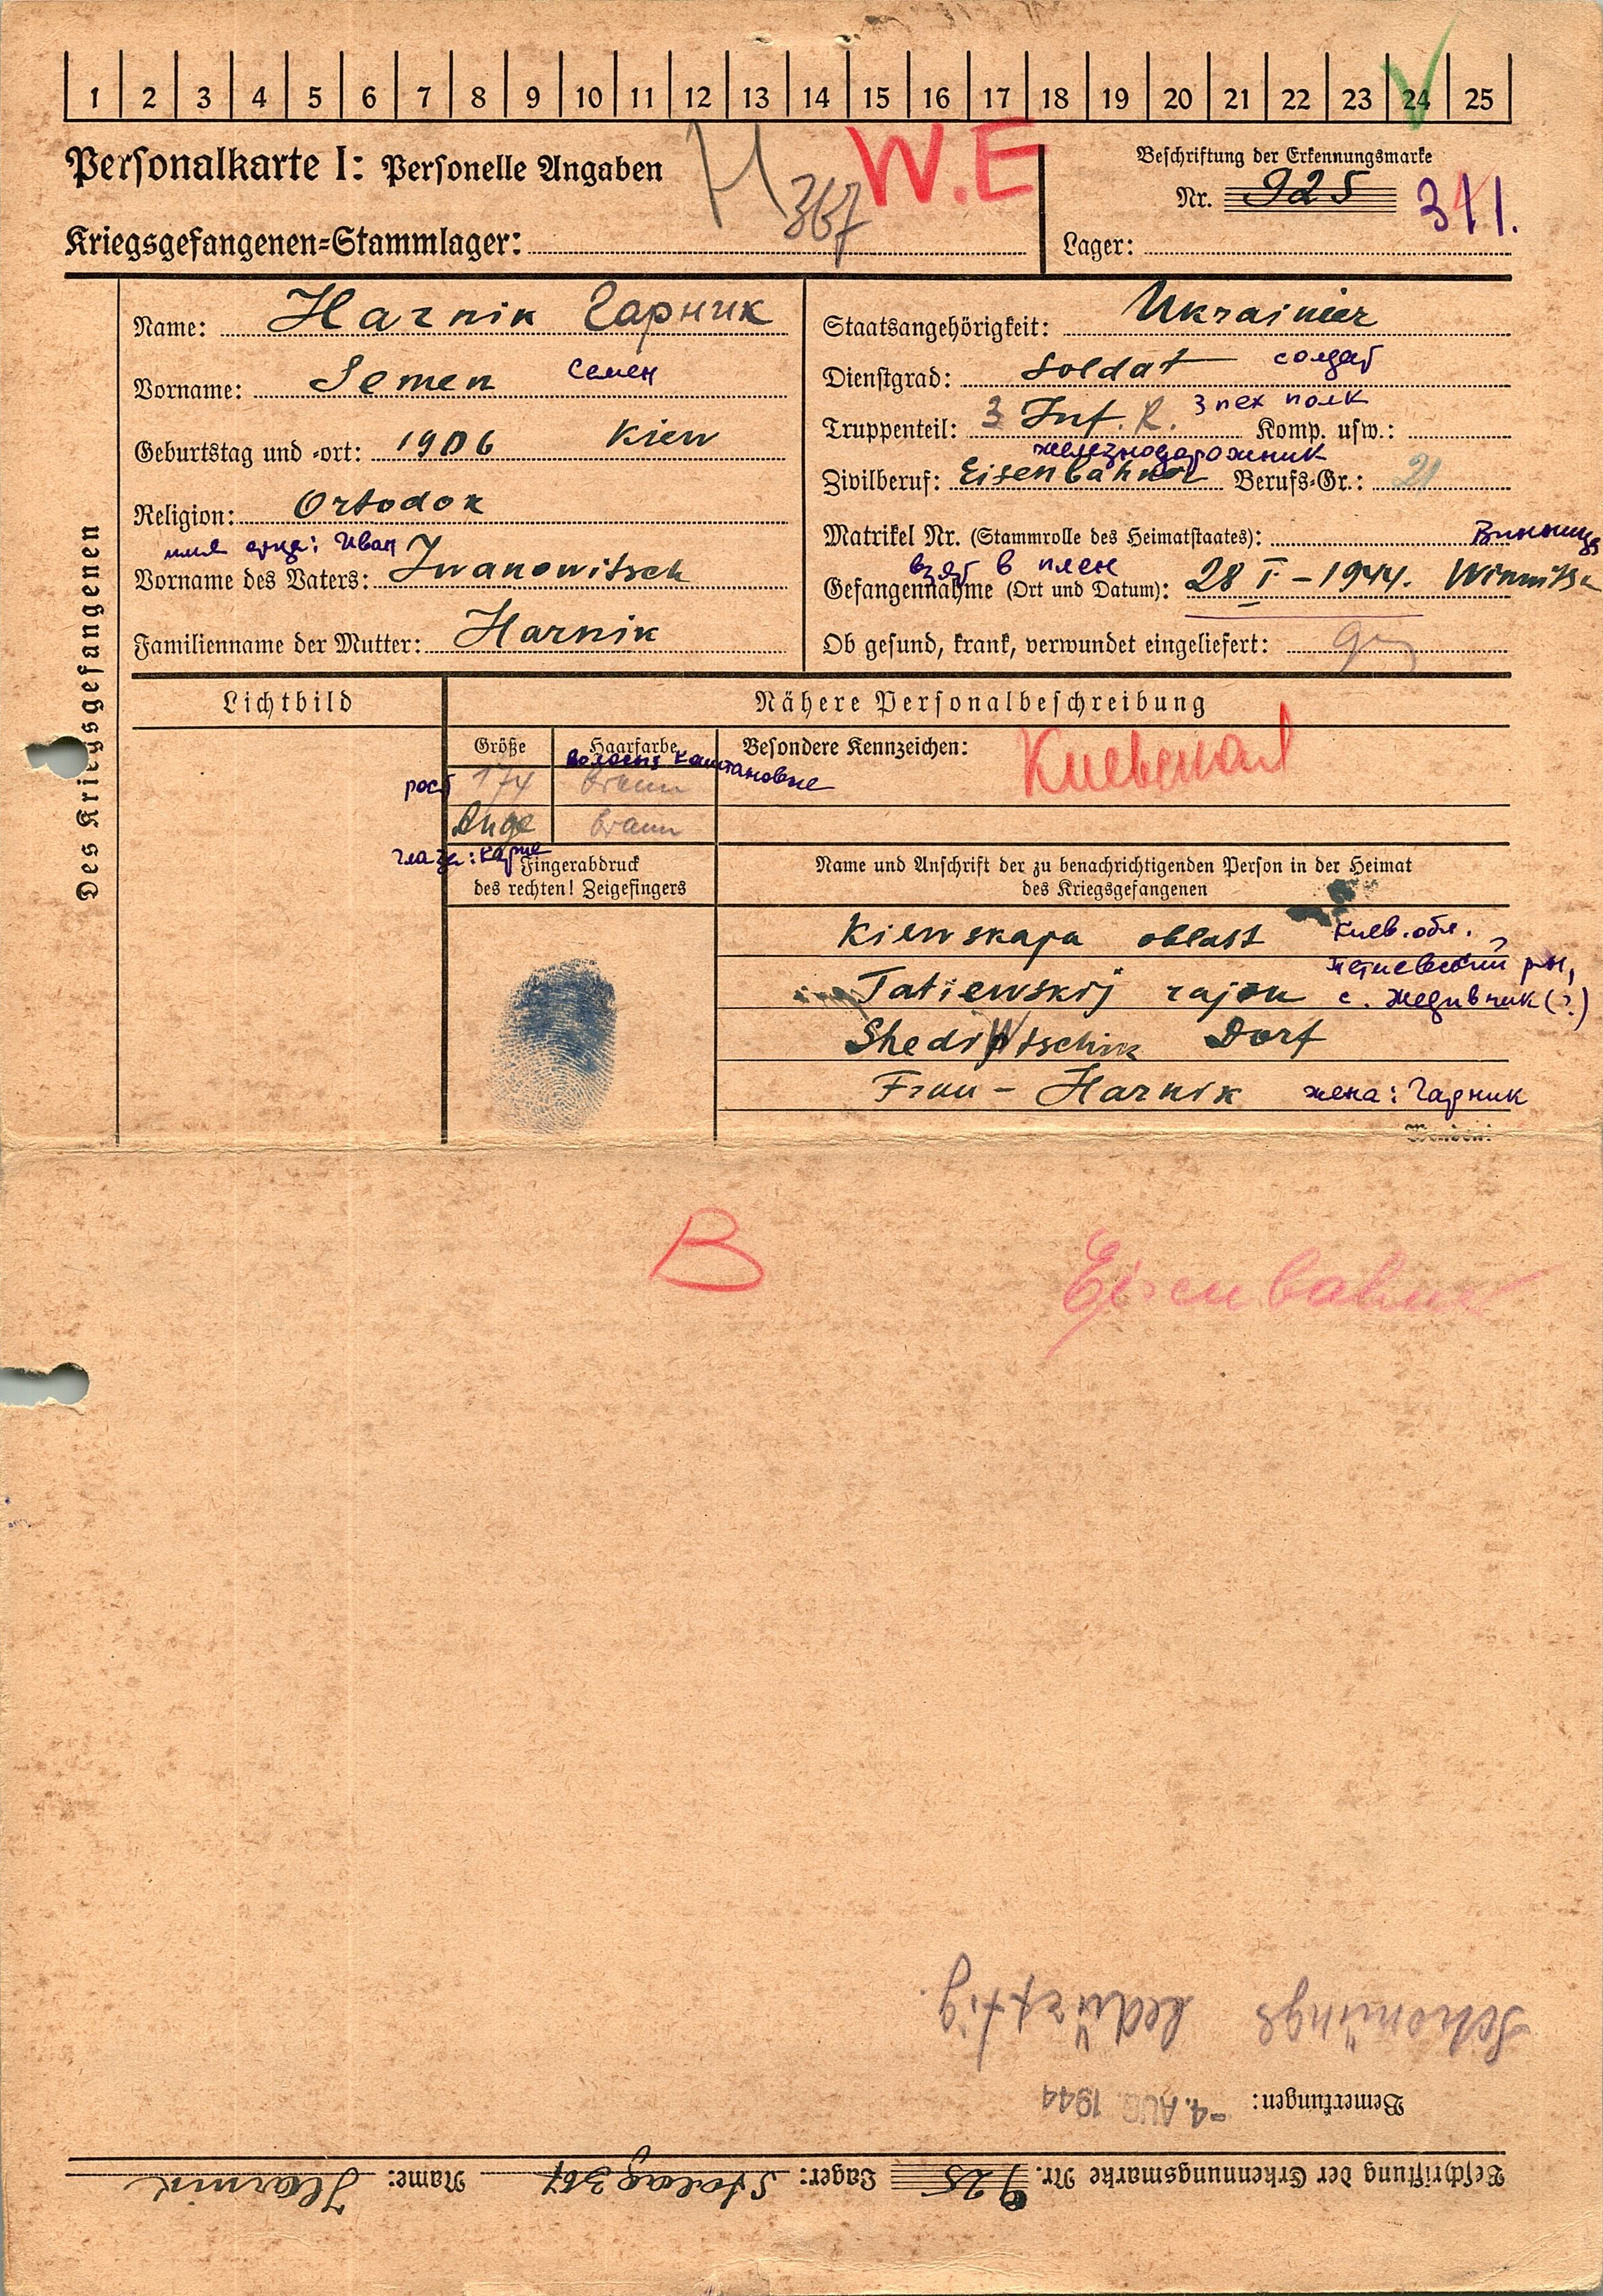 1 2 3 4 5 6 7 8 9 10 11 12 13 14 15 16 17 18 19 20 21 22 23 24 25
Personalkarte I: Personelle Angaben
H 367 W.E
Beschriftung der Erkennungsmarke
Nr. 925
Kriegsgefangenen-Stammlager:
Lager:
Des Kriegsgefangenen
Name: Harnik Гарник
Vorname: Semen Семен
Geburtstag und -ort: 1906 Kiew
Religion: Ortodox
имя отца: Иван
Vorname des Vaters: Iwanowitsch
Familienname der Mutter: Harnik
Staatsangehörigkeit: Ukrainier
Dienstgrad: Soldat солдат
Truppenteil: 3 Inf. R. 3 пех полк Komp. usw.:
железнодорожник
Zivilberuf: Eisenbahner Berufs-Gr.: 21
Matrikel Nr. (Stammrolle des Heimatstaates): Винница
взят в плен
Gefangennahme (Ort und Datum): 28 I - 1944. Winnitsa
Ob gesund, krank, verwundet eingeliefert:
Lichtbild
Nähere Personalbeschreibung
Größe Haarfarbe Besondere Kennzeichen:
волосы каштановые
рост 174 braun
Auge braun
глаза: карие
Fingerabdruck
des rechten! Zeigefingers
Name und Anschrift der zu benachrichtigenden Person in der Heimat
des Kriegsgefangenen
Kiewskaja oblast Киев. обл.,
Tatiewskij rajon
с. Жедивчик (?)
Shediwtschik Dorf
Frau - Harnik жена: Гарник
B
Eisenbahner
Schonungs bedürftig.
Bemerkungen: -4. AUG. 1944
Beschriftung der Erkennungsmarke Nr. 925 Lager: Stalag 367 Name: Harnik